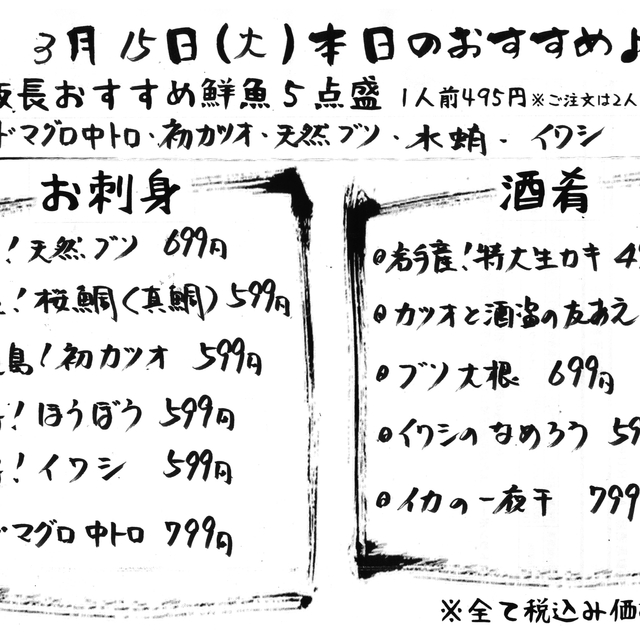 3月15日(火)本日のおすすめ
長おすすめ鮮魚5点盛 1人前495円※ご注文は2人
ドマグロ中トロ・初カツオ・天然ブリ・水蛸・イワシ
お刺身
！天然ブリ 699円
！桜鯛(真鯛) 599円
島！初カツオ 599円
！ほうぼう 599円
！イワシ 599円
マグロ中トロ 799円
酒肴
岩手産！特大生カキ 4
カツオと酒盗の友あえ
ブリ大根 699円
イワシのなめろう 59
イカの一夜干 799
※全て税込み価